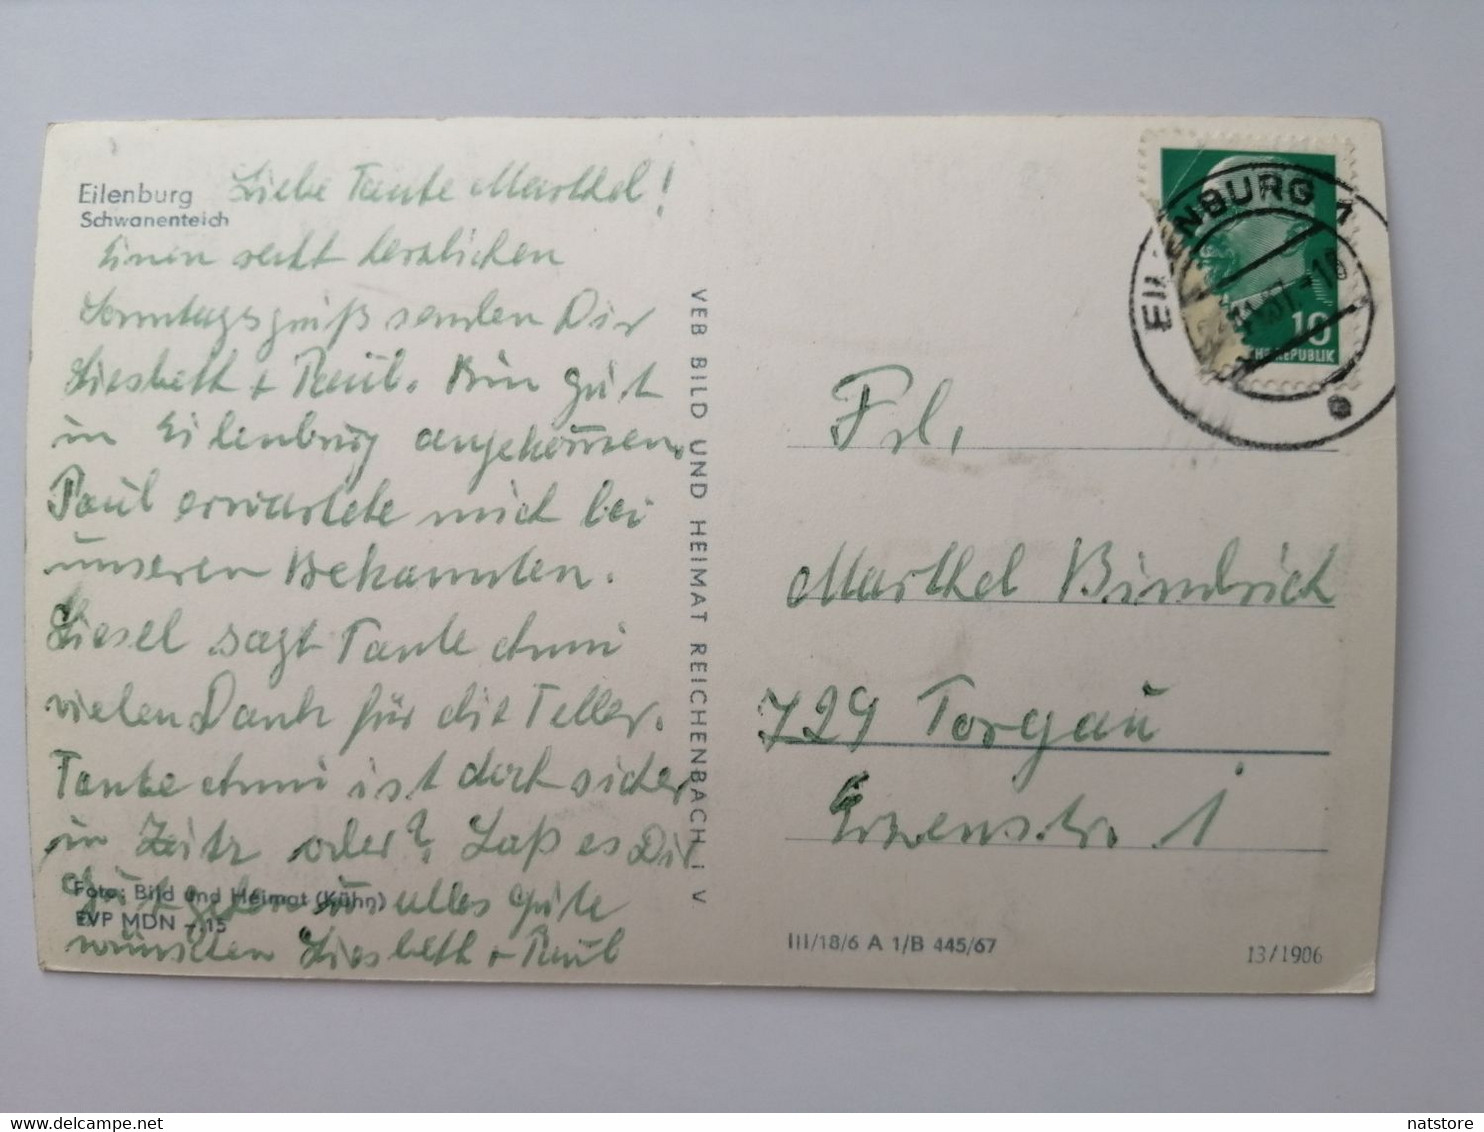 Eilenburg
Schwanenteich
Liebe Tante Marthel!
Einen recht herzlichen
Sonntagsgruß senden Dir
Liesbeth + Paul. Bin gut
in Eilenburg angekommen.
Paul erwartete mich bei
unseren Bekannten.
Liesel sagt Tante Anni
vielen Dank für die Teller.
Tante Anni ist doch sicher
in Zeitz oder? Laß es Dir
gut gehen und alles Gute
wünschen Liesbeth + Paul
Foto: Bild und Heimat (Kühn)
EVP MDN -,15
VEB BILD UND HEIMAT REICHENBACH I V
EILENBURG 1
10
REPUBLIK
Frl.
Marthel Bindrich
729 Torgau
1
III/18/6 A 1/B 445/67
13/1906
natstore